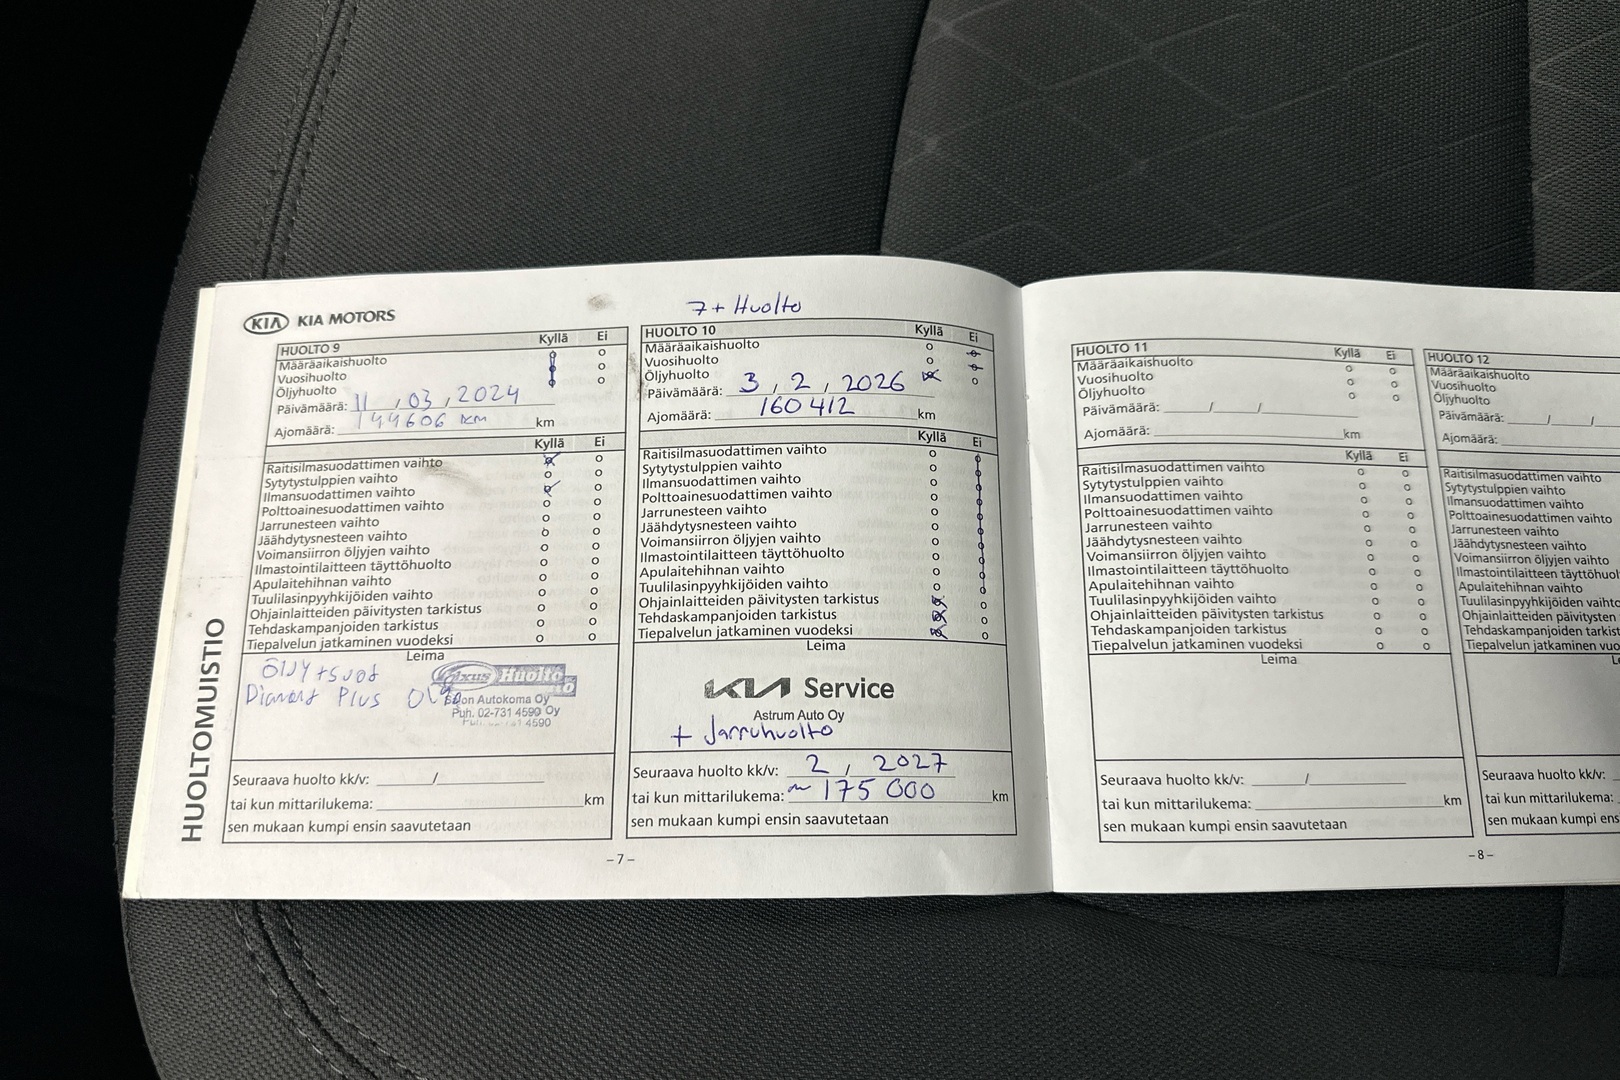 KIA KIA MOTORS
HUOLTOMUISTIO
HUOLTO 9 Kyllä Ei
Määräaikaishuolto
Vuosihuolto
Öljyhuolto
Päivämäärä: 11 , 03 , 2024
Ajomäärä: 144606 km km
Kyllä Ei
Raitisilmasuodattimen vaihto
Sytytystulppien vaihto
Ilmansuodattimen vaihto
Polttoainesuodattimen vaihto
Jarrunesteen vaihto
Jäähdytysnesteen vaihto
Voimansiirron öljyjen vaihto
Ilmastointilaitteen täyttöhuolto
Apulaitehihnan vaihto
Tuulilasinpyyhkijöiden vaihto
Ohjainlaitteiden päivitysten tarkistus
Tehdaskampanjoiden tarkistus
Tiepalvelun jatkaminen vuodeksi
Leima
Huolto
Plus
Autokoma Oy
Puh. 02-731 4590 Oy
4590
Seuraava huolto kk/v: /
tai kun mittarilukema: km
sen mukaan kumpi ensin saavutetaan
7+ Huolto
HUOLTO 10 Kyllä Ei
Määräaikaishuolto
Vuosihuolto
Öljyhuolto
Päivämäärä: 3 , 2 , 2026
Ajomäärä: 160 412 km
Kyllä Ei
Raitisilmasuodattimen vaihto
Sytytystulppien vaihto
Ilmansuodattimen vaihto
Polttoainesuodattimen vaihto
Jarrunesteen vaihto
Jäähdytysnesteen vaihto
Voimansiirron öljyjen vaihto
Ilmastointilaitteen täyttöhuolto
Apulaitehihnan vaihto
Tuulilasinpyyhkijöiden vaihto
Ohjainlaitteiden päivitysten tarkistus
Tehdaskampanjoiden tarkistus
Tiepalvelun jatkaminen vuodeksi
Leima
KIA Service
Astrum Auto Oy
+ Jarruhuolto
Seuraava huolto kk/v: 2 , 2027
tai kun mittarilukema: ~ 175 000 km
sen mukaan kumpi ensin saavutetaan
- 7 -
HUOLTO 11 Kyllä Ei
Määräaikaishuolto
Vuosihuolto
Öljyhuolto
Päivämäärä: / /
Ajomäärä: km
Kyllä Ei
Raitisilmasuodattimen vaihto
Sytytystulppien vaihto
Ilmansuodattimen vaihto
Polttoainesuodattimen vaihto
Jarrunesteen vaihto
Jäähdytysnesteen vaihto
Voimansiirron öljyjen vaihto
Ilmastointilaitteen täyttöhuolto
Apulaitehihnan vaihto
Tuulilasinpyyhkijöiden vaihto
Ohjainlaitteiden päivitysten tarkistus
Tehdaskampanjoiden tarkistus
Tiepalvelun jatkaminen vuodeksi
Leima
Seuraava huolto kk/v: /
tai kun mittarilukema: km
sen mukaan kumpi ensin saavutetaan
- 8 -
HUOLTO 12
Määräaikaishuolto
Vuosihuolto
Öljyhuolto
Päivämäärä: / /
Ajomäärä:
Raitisilmasuodattimen vaihto
Sytytystulppien vaihto
Ilmansuodattimen vaihto
Polttoainesuodattimen vaihto
Jarrunesteen vaihto
Jäähdytysnesteen vaihto
Voimansiirron öljyjen vaihto
Ilmastointilaitteen täyttöhuol
Apulaitehihnan vaihto
Tuulilasinpyyhkijöiden vaihto
Ohjainlaitteiden päivitysten
Tehdaskampanjoiden tarkist
Tiepalvelun jatkaminen vuo
Le
Seuraava huolto kk/v:
tai kun mittarilukema:
sen mukaan kumpi ens